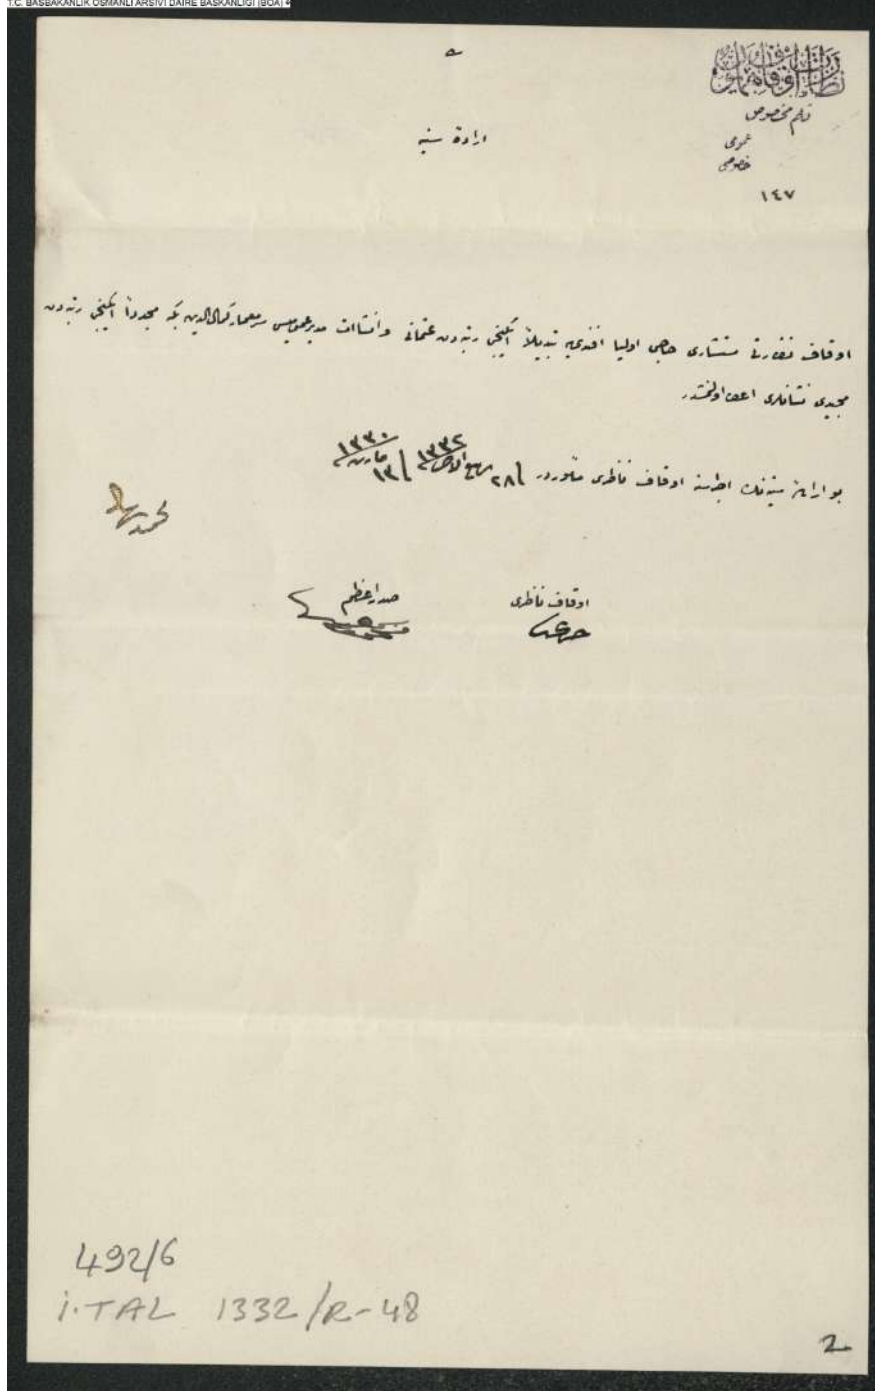 T.C. BAŞBAKANLIK OSMANLI ARŞİVİ DAİRE BAŞKANLIĞI (BOA)
نظارت اوقاف همایون
قلم مخصوص
عمومی
خصوصی
١٤٧
ارادهٔ سنیه
اوقاف نظارتی مستشاری حاجی اولیا افندیه تبدیلاً ایکنجی رتبه‌دن عثمانی و انشاآت مدیر عمومیسی سرمعمار کمال‌الدین بكه مجدداً ایکنجی رتبه‌دن
مجیدی نشانلری اعطا اولنمشدر
بو ارادهٔ سنیه‌نك اجراسنه اوقاف ناظری مأموردر ٢٨ ربیع الاخر ١٣٣٢ ١٣ مارت ١٣٣٠
محمد رشاد
اوقاف ناظری
صدر اعظم
492/6
İ.TAL 1332/R-48
2